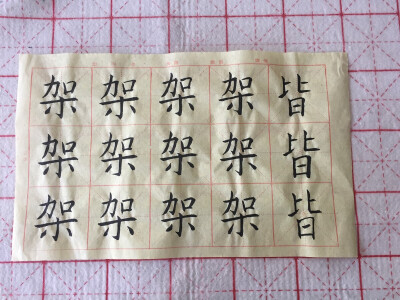 架架架架皆
架架架架皆
架架架架皆